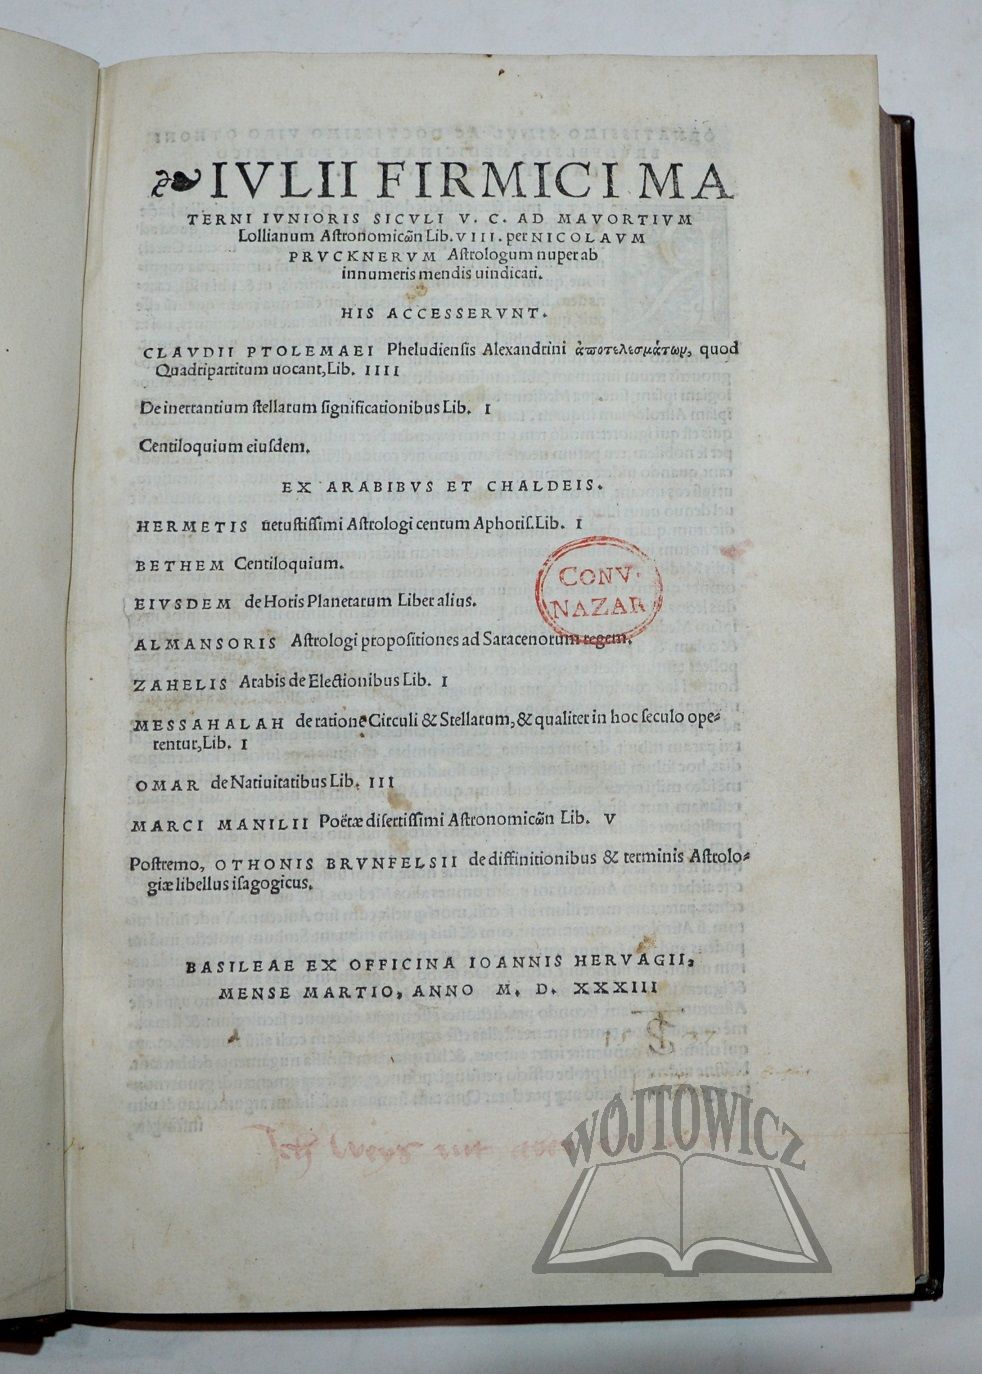 IVLII FIRMICI MA
TERNI IVNIORIS SICVLI V. C. AD MAVORTIVM
Lollianum Astronomicῶn Lib. VIII. per NICOLAVM
PRVCKNERVM Astrologum nuper ab
innumeris mendis uindicati.
HIS ACCESSERVNT.
CLAVDII PTOLEMAEI Pheludiensis Alexandrini ἀποτελεσμάτων, quod
Quadripartitum uocant, Lib. IIII
De inerrantium stellarum significationibus Lib. I
Centiloquium eiusdem.
EX ARABIBVS ET CHALDEIS.
HERMETIS uetustissimi Astrologi centum Aphoris. Lib. I
BETHEM Centiloquium.
EIVSDEM de Horis Planetarum Liber alius.
CONV.
NAZAR
ALMANSORIS Astrologi propositiones ad Saracenorum regem.
ZAHELIS Arabis de Electionibus Lib. I
MESSAHALAH de ratione Circuli & Stellarum, & qualiter in hoc seculo ope-
rentur, Lib. I
OMAR de Natiuitatibus Lib. III
MARCI MANILII Poëtæ disertissimi Astronomicῶn Lib. V
Postremo, OTHONIS BRVNFELSII de diffinitionibus & terminis Astrolo-
giæ libellus isagogicus.
BASILEAE EX OFFICINA IOANNIS HERVAGII,
MENSE MARTIO, ANNO M. D. XXXIII
WÓJTOWICZ